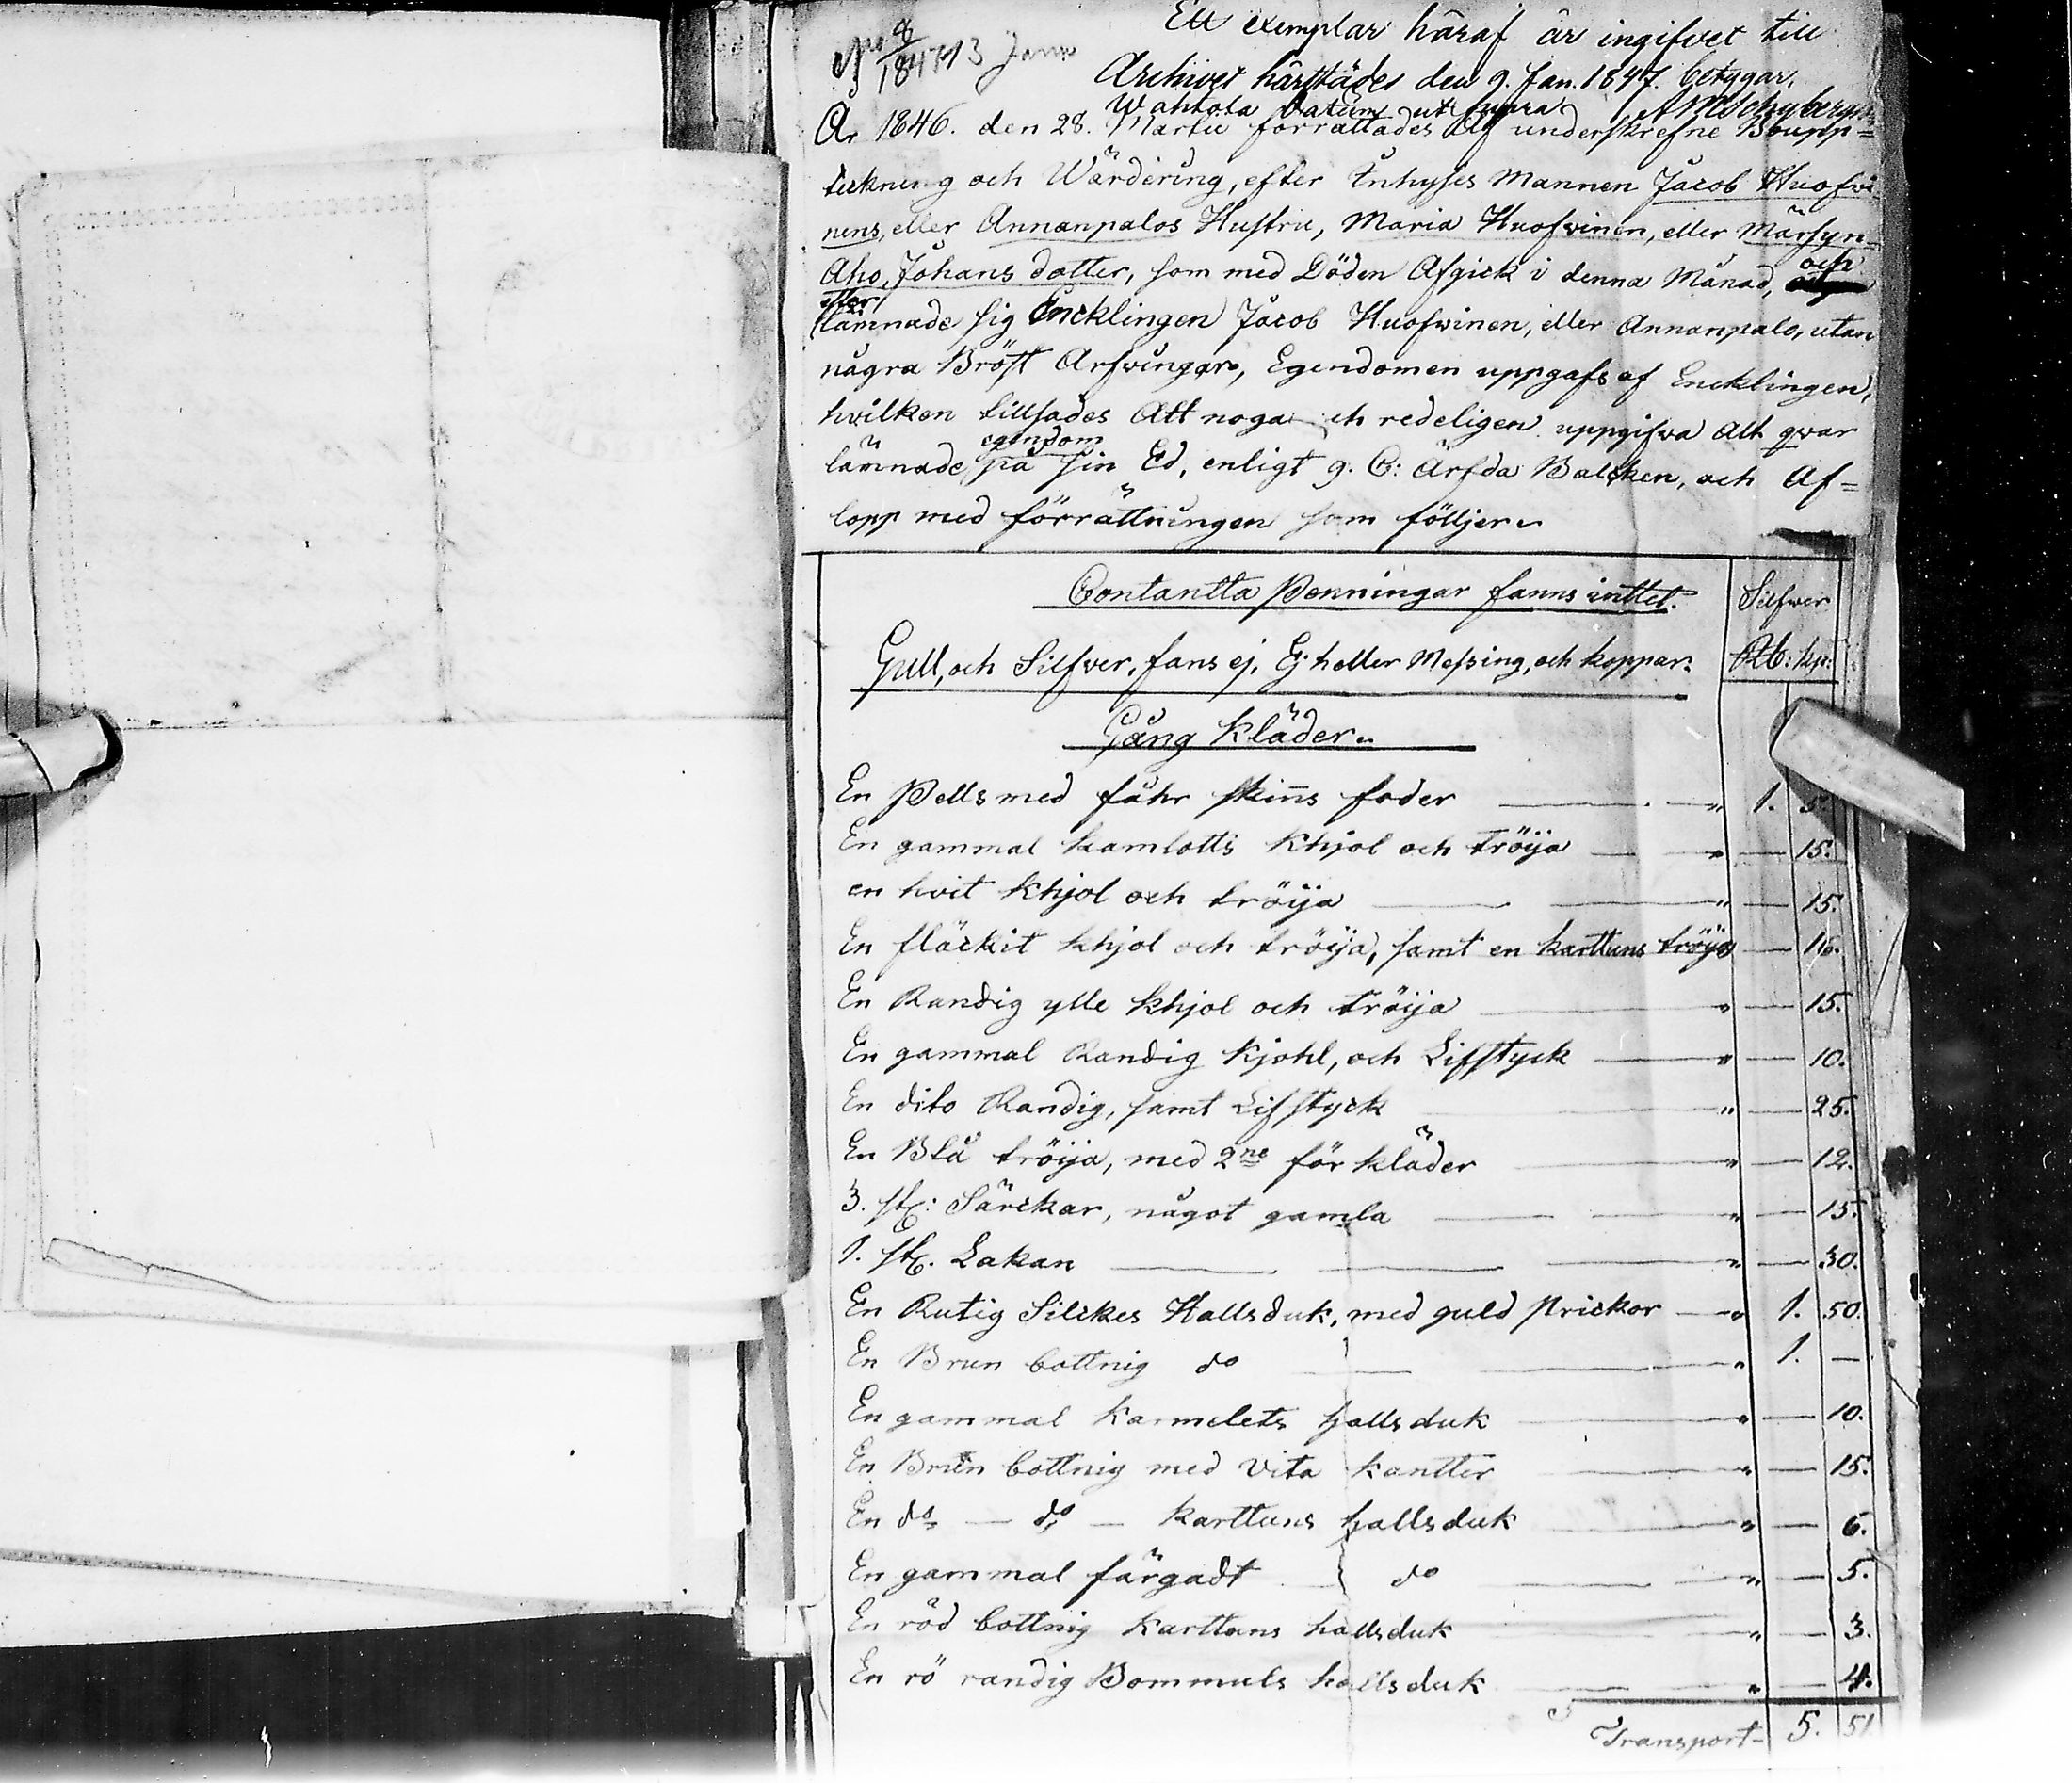 No 8/1847 13 Janu
Ett exemplar häraf är ingifvet till
Archivet härstädes den 9. Jan. 1847. betygar.
Wahtola Datum ut supra AMSchybergson
År 1846. den 28. Martii förrättades Af underskrefne Boupp=
teckning och Wärdering, efter Inhyses Mannen Jacob Huofvi
nens, eller Annanpalos Hustru, Maria Huofvinen, eller Märsyn=
Aho, Johans dotter, som med Döden Afgick i denna Månad, och
efter
lämnade sig Encklingen Jacob Huofwinen, eller Annanpalo, utan
några Bröst Arfvingar, Egendomen uppgafs af Encklingen,
hvilken tillsades Att noga och redeligen uppgifva Alt qvar
egendom
lämnade på sin Ed, enligt 9. C: Ärfda Balcken, och Af=
lopp med förrättningen som följer.
Contantta Penningar fanns inttet.
Silfwer
Gull, och Silfver, fans ej, Ej heller Messing, och koppar.
Rb: kp:
Gång Kläder.
En Pells med fåhr skinns foder — " 1. 5
En gammal kamlotts Khjol och tröija — " — 15.
en hvit Khjol och tröija — " — 15.
En fläckit khjol och tröija, samt en karttuns tröija — 16.
En Randig ylle khjol och tröija — " — 15.
En gammal Randig kjohl, och Lifstyck — " — 10.
En dito Randig, samt Lifstyck — " — 25.
En Blå tröija, med 2ne för kläder — " — 12.
3. st: Särckar, något gamla — " — 15.
1. st. Lakan — " — 30.
En Rutig Silckes Hallsduk, med guld prickor — " 1. 50.
En Brun bottnig do — " 1. —
En gammal Karmelets hallsduk — " — 10.
En Brun bottnig med Vita kantter — " — 15.
En do — do — karttuns hallsduk — " — 6.
En gammal färgadt do — " — 5.
En röd bottnig karttuns hallsduk — " — 3.
En rö randig Bommuls hallsduk — " — 4.
Transport — 5. 51